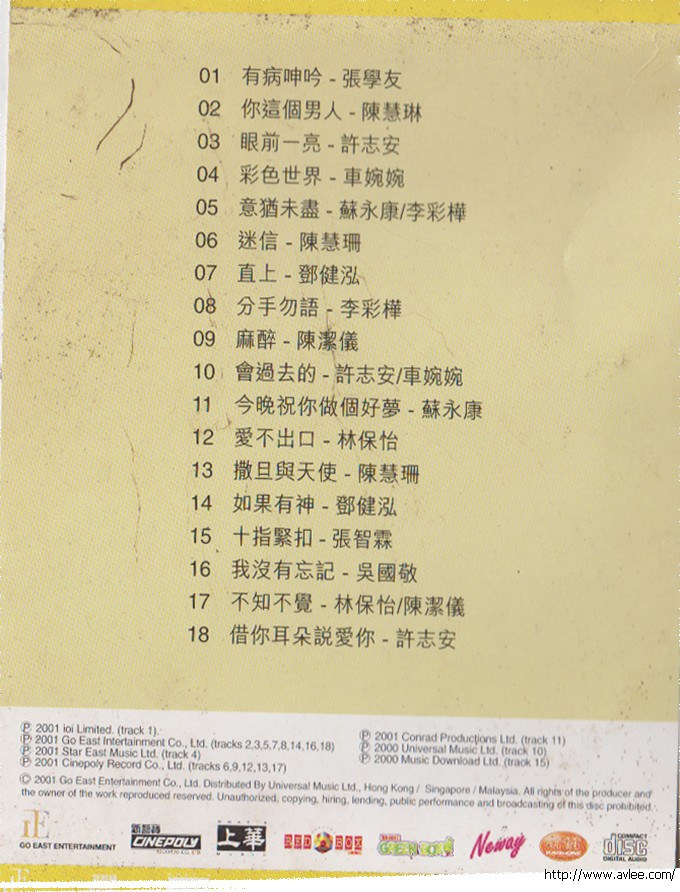 01 有病呻吟 - 張學友
02 你這個男人 - 陳慧琳
03 眼前一亮 - 許志安
04 彩色世界 - 車婉婉
05 意猶未盡 - 蘇永康/李彩樺
06 迷信 - 陳慧珊
07 直上 - 鄧健泓
08 分手勿語 - 李彩樺
09 麻醉 - 陳潔儀
10 會過去的 - 許志安/車婉婉
11 今晚祝你做個好夢 - 蘇永康
12 愛不出口 - 林保怡
13 撒旦與天使 - 陳慧珊
14 如果有神 - 鄧健泓
15 十指緊扣 - 張智霖
16 我沒有忘記 - 吳國敬
17 不知不覺 - 林保怡/陳潔儀
18 借你耳朵説愛你 - 許志安
Ⓟ 2001 ioi Limited. (track 1).
Ⓟ 2001 Go East Intertainment Co., Ltd. (tracks 2,3,5,7,8,14,16,18)
Ⓟ 2001 Star East Music Ltd. (track 4)
Ⓟ 2001 Cinepoly Record Co., Ltd. (tracks 6,9,12,13,17)
Ⓟ 2001 Conrad Productions Ltd. (track 11)
Ⓟ 2000 Universal Music Ltd. (track 10)
Ⓟ 2000 Music Download Ltd. (track 15)
© 2001 Go East Entertainment Co., Ltd. Distributed By Universal Music Ltd., Hong Kong / Singapore / Malaysia. All rights of the producer and
the owner of the work reproduced reserved. Unauthorized, copying, hiring, lending, public performance and broadcasting of this disc prohibited.
GO EAST ENTERTAINMENT
新藝寶
CINEPOLY
上華
RED BOX
GREEN BOX
Neway
COMPACT
disc
DIGITAL AUDIO
http://www.avlee.com/